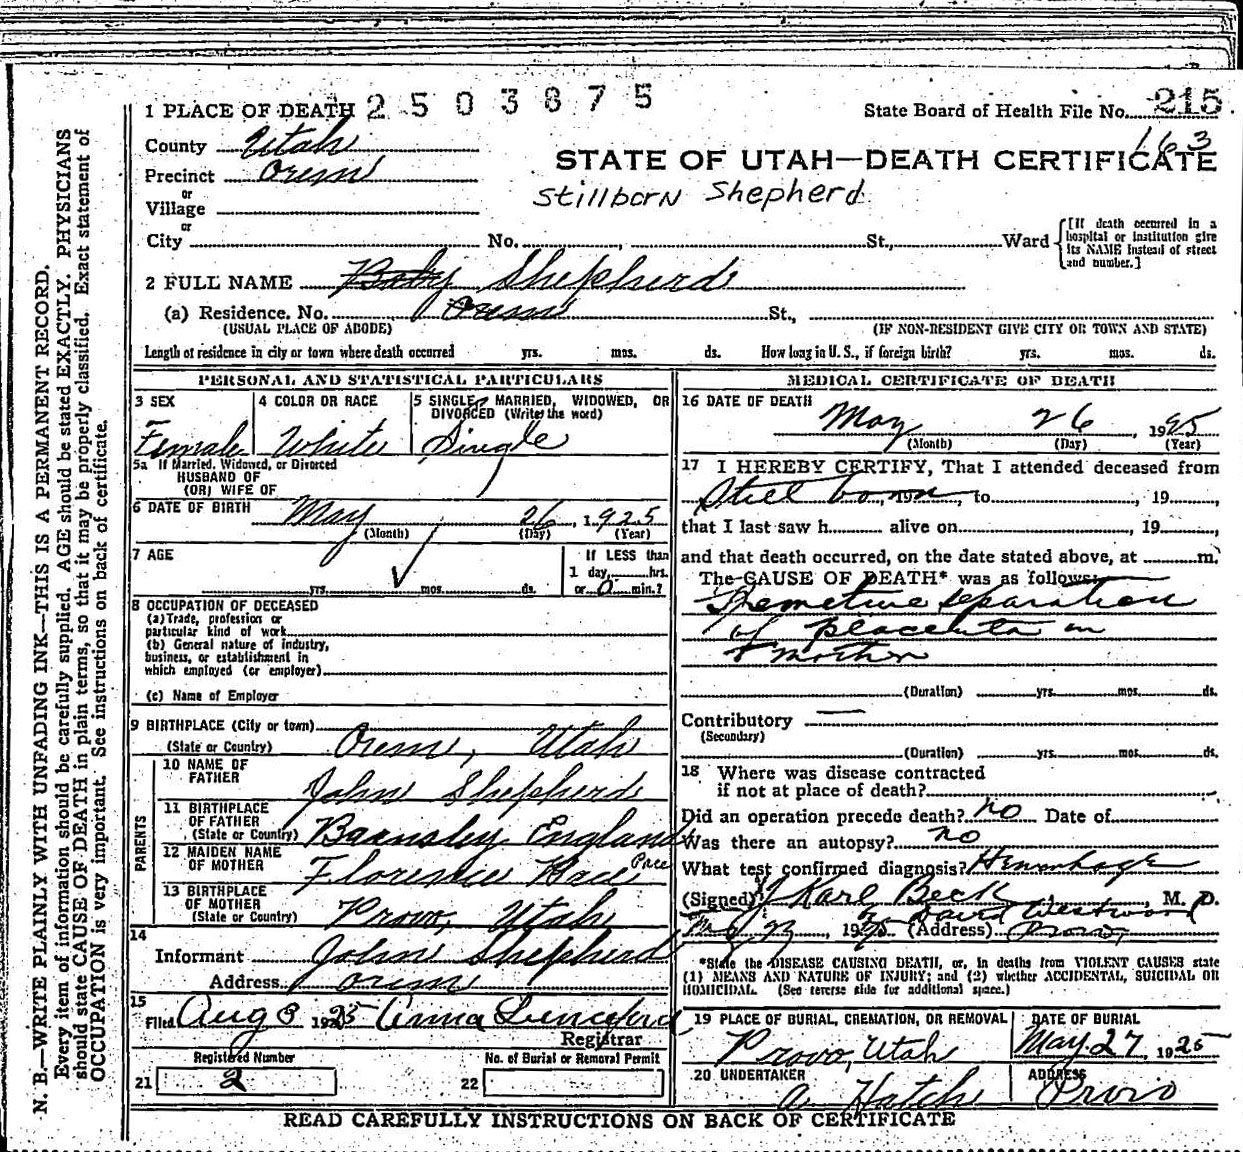 1 PLACE OF DEATH 2503875
State Board of Health File No. 215
163
County Utah
STATE OF UTAH—DEATH CERTIFICATE
Precinct Orem
or
Stillborn Shepherd
Village
or
City No. , St., Ward
[If death occurred in a hospital or institution give its NAME instead of street and number.]
2 FULL NAME Baby Shepherd
(a) Residence. No. Orem St.,
(USUAL PLACE OF ABODE) (IF NON-RESIDENT GIVE CITY OR TOWN AND STATE)
Length of residence in city or town where death occurred yrs. mos. ds. How long in U. S., if foreign birth? yrs. mos. ds.
PERSONAL AND STATISTICAL PARTICULARS
3 SEX 4 COLOR OR RACE 5 SINGLE, MARRIED, WIDOWED, OR
DIVORCED (Write the word)
Female White Single
5a If Married, Widowed, or Divorced
HUSBAND OF
(OR) WIFE OF
6 DATE OF BIRTH May 26, 1925
(Month) (Day) (Year)
7 AGE If LESS than
1 day, hrs.
yrs. mos. ds. or 0 min.?
8 OCCUPATION OF DECEASED
(a) Trade, profession or
particular kind of work
(b) General nature of industry,
business, or establishment in
which employed (or employer)
(c) Name of Employer
9 BIRTHPLACE (City or town)
(State or Country) Orem, Utah
PARENTS
10 NAME OF
FATHER John Shepherd
11 BIRTHPLACE
OF FATHER
(State or Country) Barnsley England
12 MAIDEN NAME
OF MOTHER Florence Pace Pace
13 BIRTHPLACE
OF MOTHER
(State or Country) Provo, Utah
14
Informant John Shepherd
Address Orem
15
Filed Aug 3 1925 Anna Lunceford
Registrar
Registered Number No. of Burial or Removal Permit
21 2 22
MEDICAL CERTIFICATE OF DEATH
16 DATE OF DEATH
May 26, 1925
(Month) (Day) (Year)
17 I HEREBY CERTIFY, That I attended deceased from
Still born, 19, to , 19
that I last saw h alive on , 19
and that death occurred, on the date stated above, at m.
The CAUSE OF DEATH* was as follows:
Premetive separation
of placenta in
mother
(Duration) yrs. mos. ds.
Contributory —
(Secondary)
(Duration) yrs. mos. ds.
18 Where was disease contracted
if not at place of death?
Did an operation precede death? no Date of
Was there an autopsy? no
What test confirmed diagnosis? Hemorhage
(Signed) J Karl Beck, M. D.
David Westwood
, 1925 (Address) Provo,
*State the DISEASE CAUSING DEATH, or, in deaths from VIOLENT CAUSES state
(1) MEANS AND NATURE OF INJURY; and (2) whether ACCIDENTAL, SUICIDAL OR
HOMICIDAL. (See reverse side for additional space.)
19 PLACE OF BURIAL, CREMATION, OR REMOVAL DATE OF BURIAL
Provo, Utah May 27, 1925
20 UNDERTAKER ADDRESS
A Hatch Provo
READ CAREFULLY INSTRUCTIONS ON BACK OF CERTIFICATE
N. B.—WRITE PLAINLY WITH UNFADING INK—THIS IS A PERMANENT RECORD.
Every item of information should be carefully supplied. AGE should be stated EXACTLY. PHYSICIANS
should state CAUSE OF DEATH in plain terms, so that it may be properly classified. Exact statement of
OCCUPATION is very important. See instructions on back of certificate.